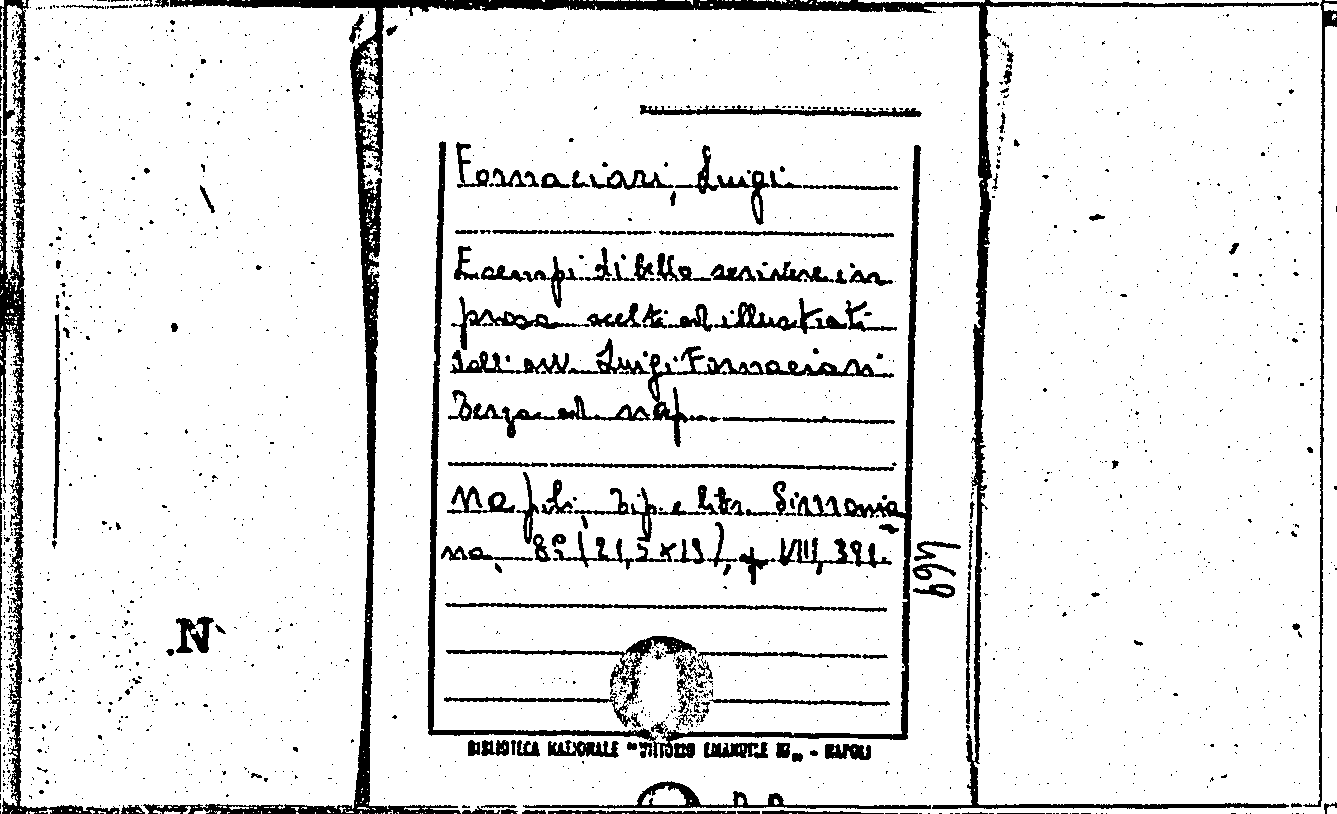 Fornaciari, Luigi
Esempi di bello scrivere in
prosa scelti ed illustrati
dall'avv. Luigi Fornaciari
Terza ed. nap.
Napoli, Tip. e lito. Sirronia
na, 8° (21,5x13), p. VIII, 391.
N
BIBLIOTECA NAZIONALE "VITTORIO EMANUELE III" - NAPOLI